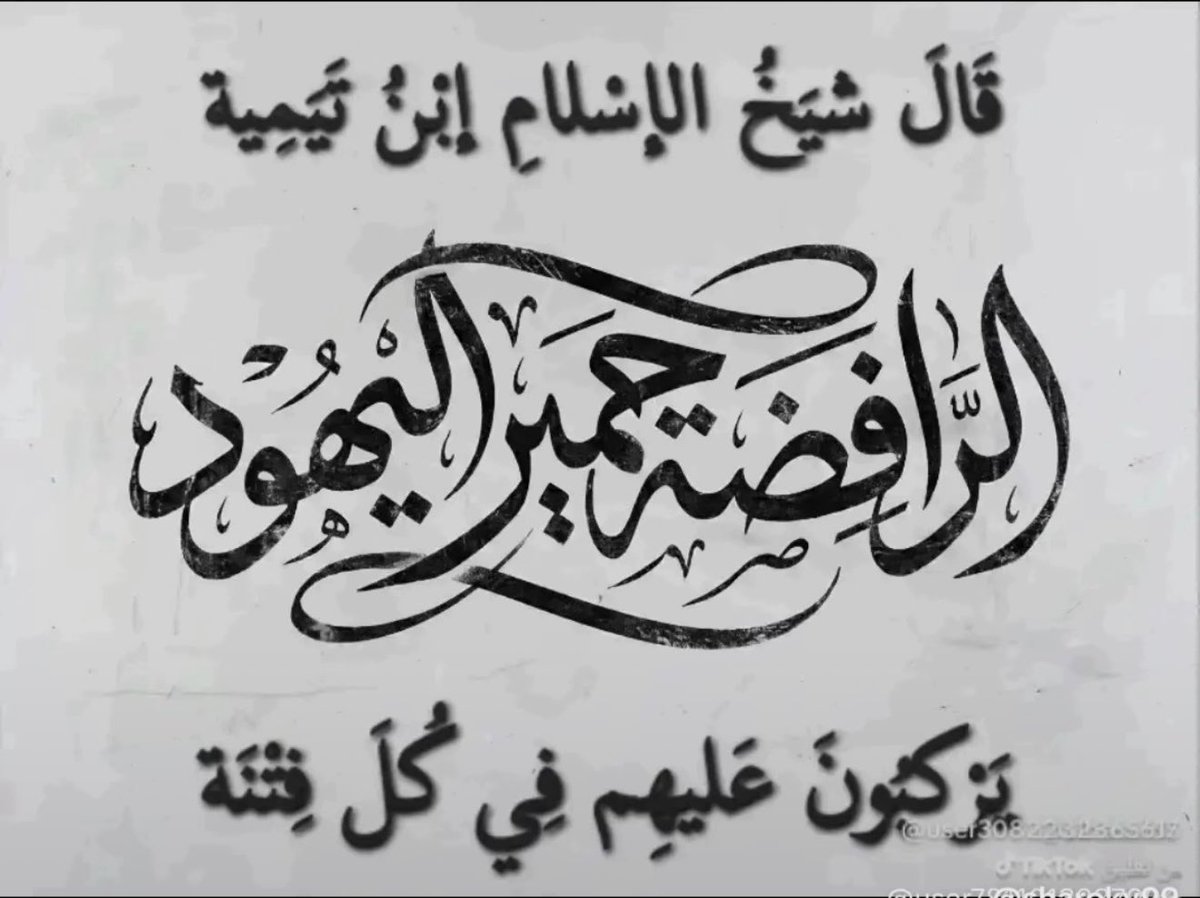 قَالَ شَيَخُ الإسْلامِ إبْنُ تَيَمِية
الرَّافِضَة حمَير اليَهُود
يَرْكبُونَ عَليهِم فِي كُلَ فِتْنَة
@user3082232863617
TikTok من تطبيق